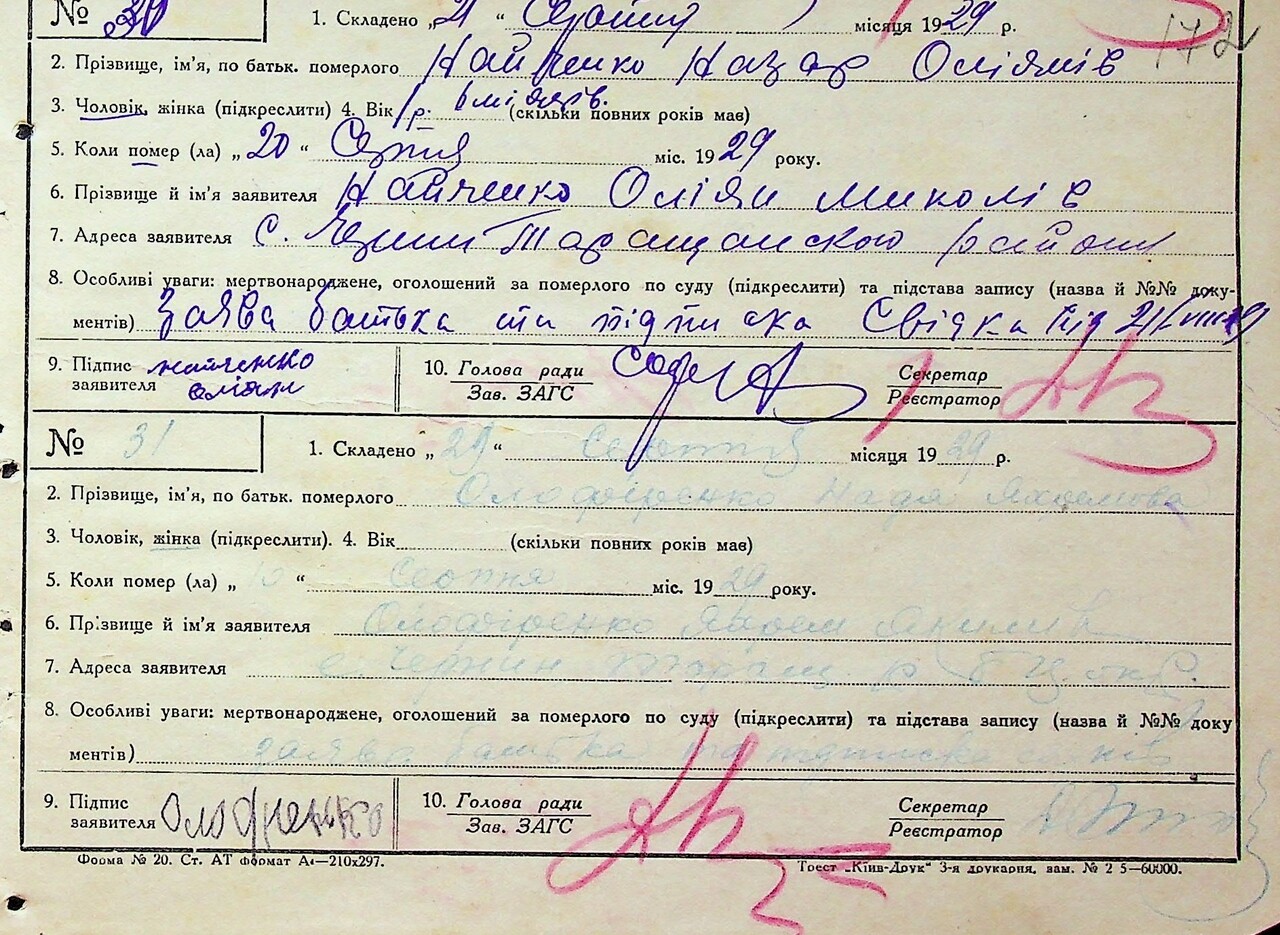 № 30 1. Складено „21“ Серпня місяця 1929 р.
172
2. Прізвище, ім'я, по батьк. померлого Найченко Назар Оліянів
3. Чоловік, жінка (підкреслити) 4. Вік 1 р. 6 місяців. (скільки повних років має)
5. Коли помер (ла) „20“ Серпня міс. 1929 року.
6. Прізвище й ім'я заявителя Найченко Оліян Миколів
7. Адреса заявителя С. Таращанского району
8. Особливі уваги: мертвонароджене, оголошений за померлого по суду (підкреслити) та підстава запису (назва й №№ доку-
ментів) Заява батька та підписка Свідка під 21/VIII
9. Підпис Найченко 10. Голова ради Секретар
заявителя Оліян Зав. ЗАГС Реєстратор
№ 31 1. Складено „29“ Серпня місяця 1929 р.
2. Прізвище, ім'я, по батьк. померлого Олофіренко Надя
3. Чоловік, жінка (підкреслити). 4. Вік (скільки повних років має)
5. Коли помер (ла) „ “ Серпня міс. 1929 року.
6. Прізвище й ім'я заявителя Олофіренко
7. Адреса заявителя с. Чернин Таращ. р. Б Ц окр.
8. Особливі уваги: мертвонароджене, оголошений за померлого по суду (підкреслити) та підстава запису (назва й №№ доку
ментів) заява батька та підписка
9. Підпис 10. Голова ради Секретар
заявителя Зав. ЗАГС Реєстратор
Форма № 20. Ст. АТ формат А4—210х297. Трест „Київ-Друк“ 3-я друкарня, зам. № 2 5—60000.